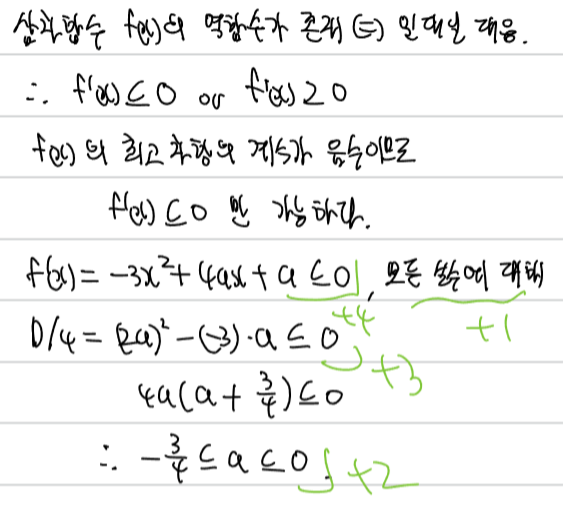 삼차함수 f(x)의 역함수가 존재 (=) 일대일 대응.
∴ f'(x) ≤ 0 or f'(x) ≥ 0
f(x)의 최고차항의 계수가 음수이므로
f'(x) ≤ 0 만 가능하다.
f(x) = -3x²+4ax+a ≤ 0, 모든 실수에 대해
+4 +1
D/4 = (2a)² - (-3)·a ≤ 0
+3
4a(a + 3/4) ≤ 0
∴ -3/4 ≤ a ≤ 0 +2